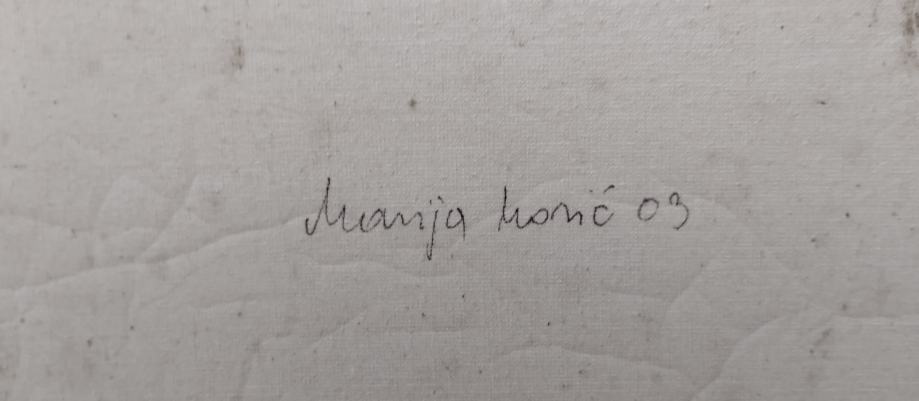 Marija Korić 03